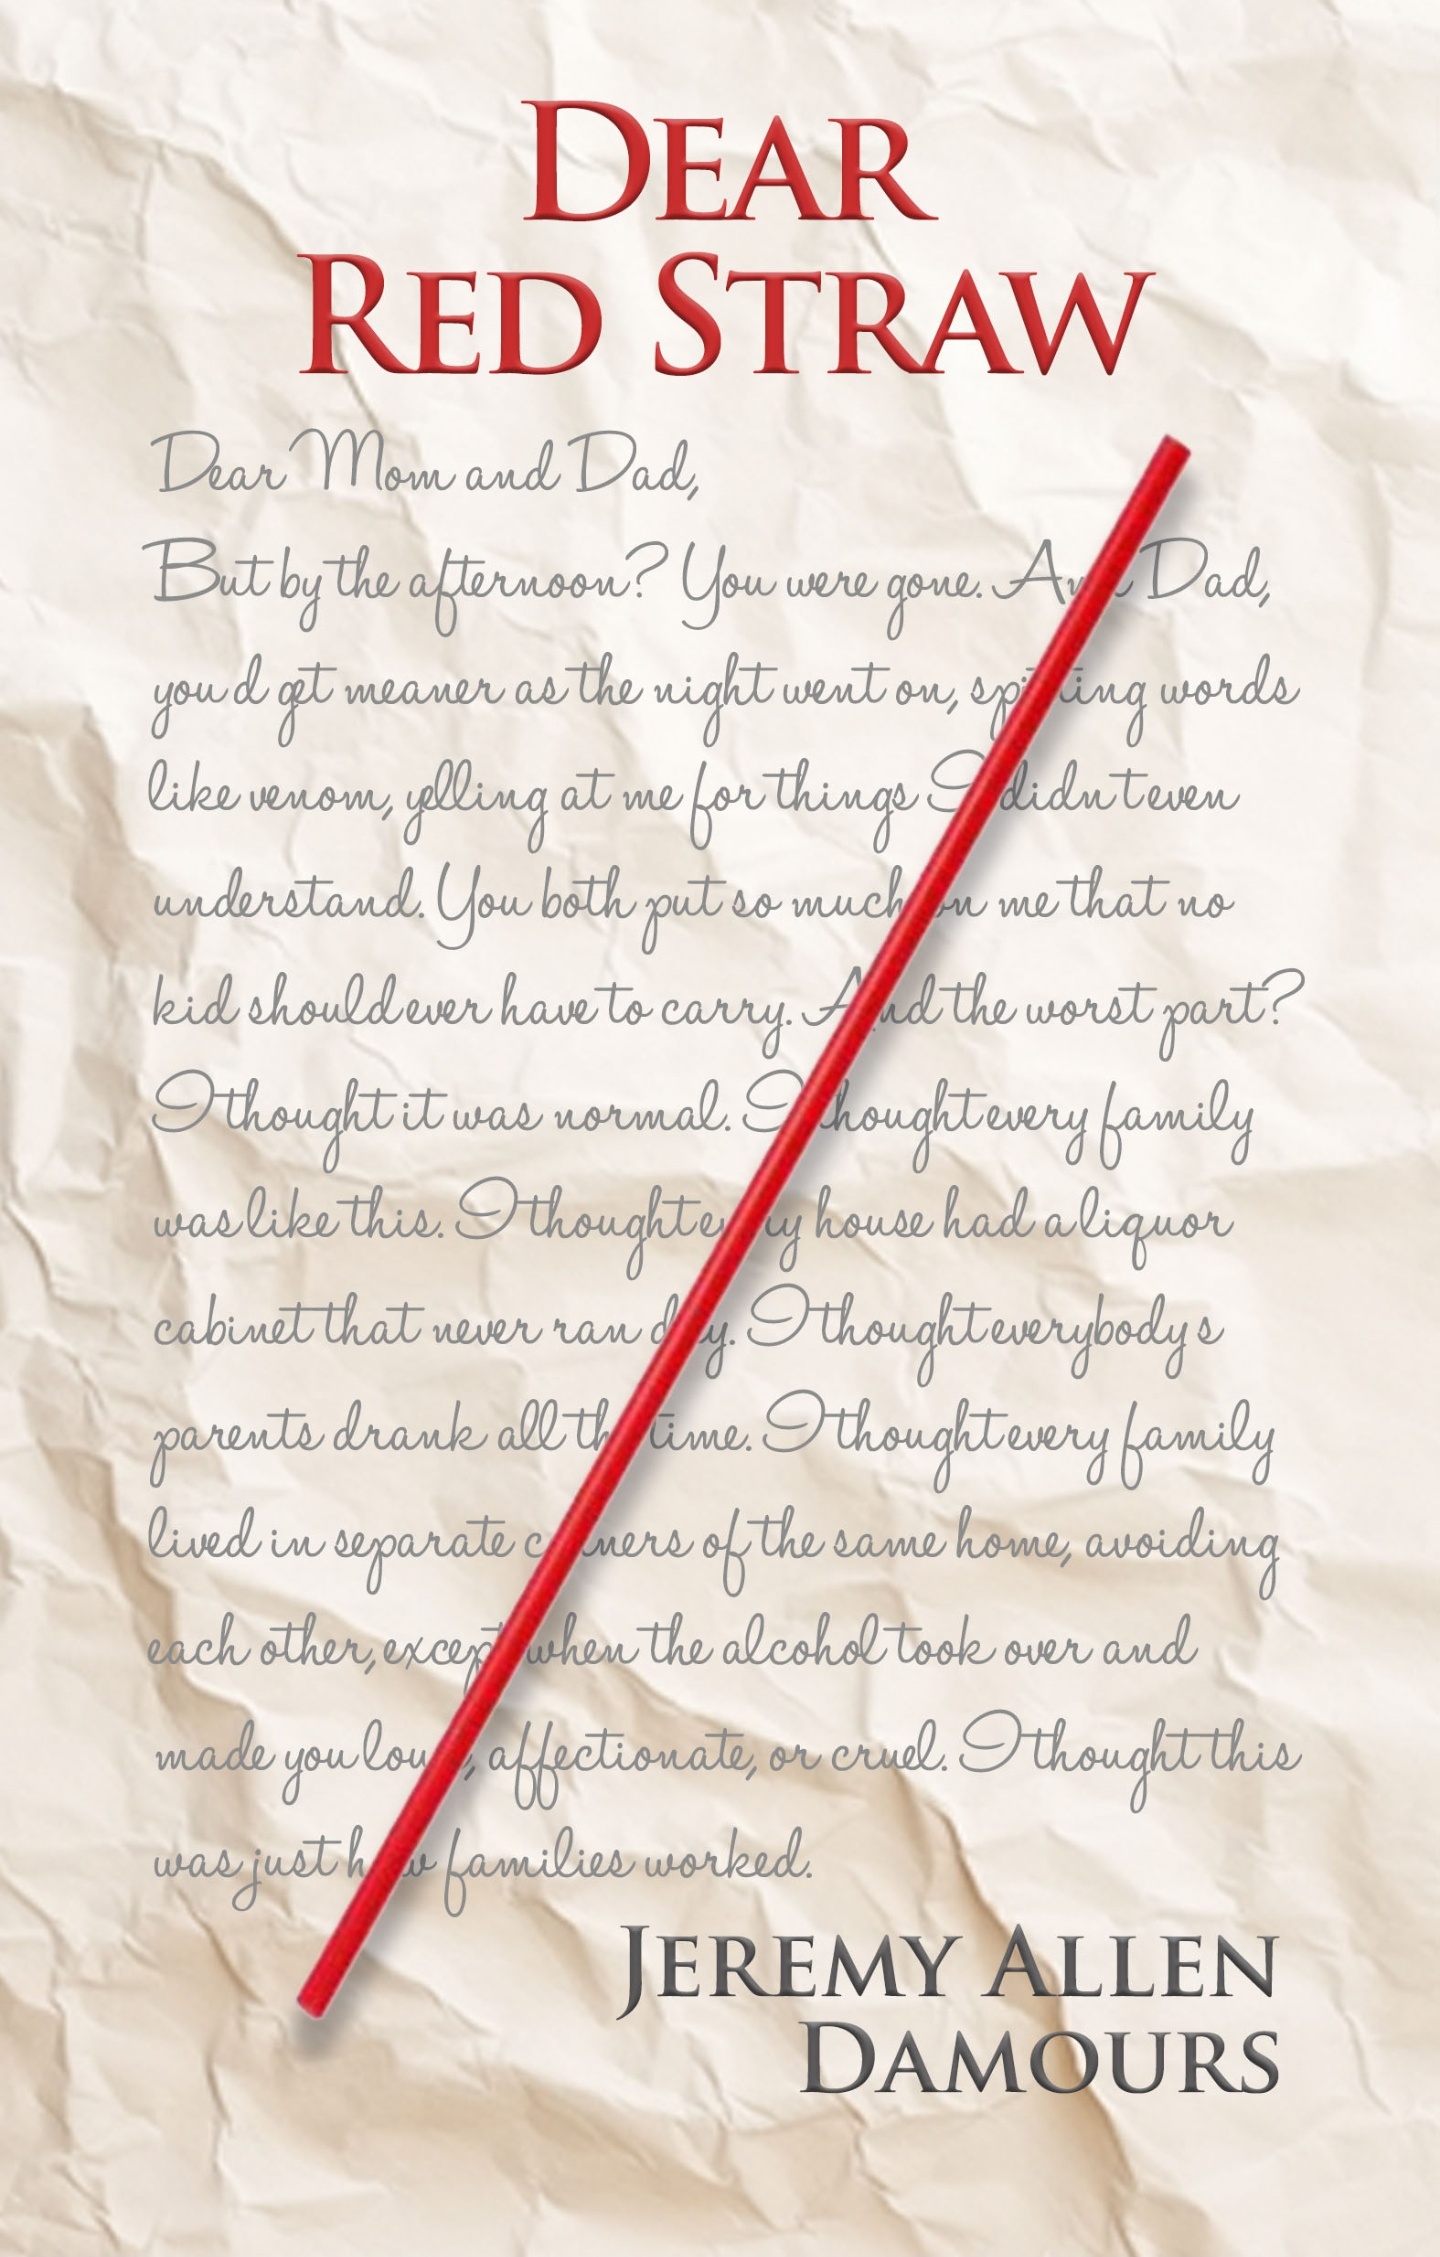 DEAR
RED STRAW
Dear Mom and Dad,
But by the afternoon? You were gone. And Dad,
you d get meaner as the night went on, spitting words
like venom, yelling at me for things I didn t even
understand. You both put so much on me that no
kid should ever have to carry. And the worst part?
I thought it was normal. I thought every family
was like this. I thought every house had a liquor
cabinet that never ran dry. I thought everybody s
parents drank all the time. I thought every family
lived in separate corners of the same home, avoiding
each other, except when the alcohol took over and
made you loud, affectionate, or cruel. I thought this
was just how families worked.
JEREMY ALLEN
DAMOURS